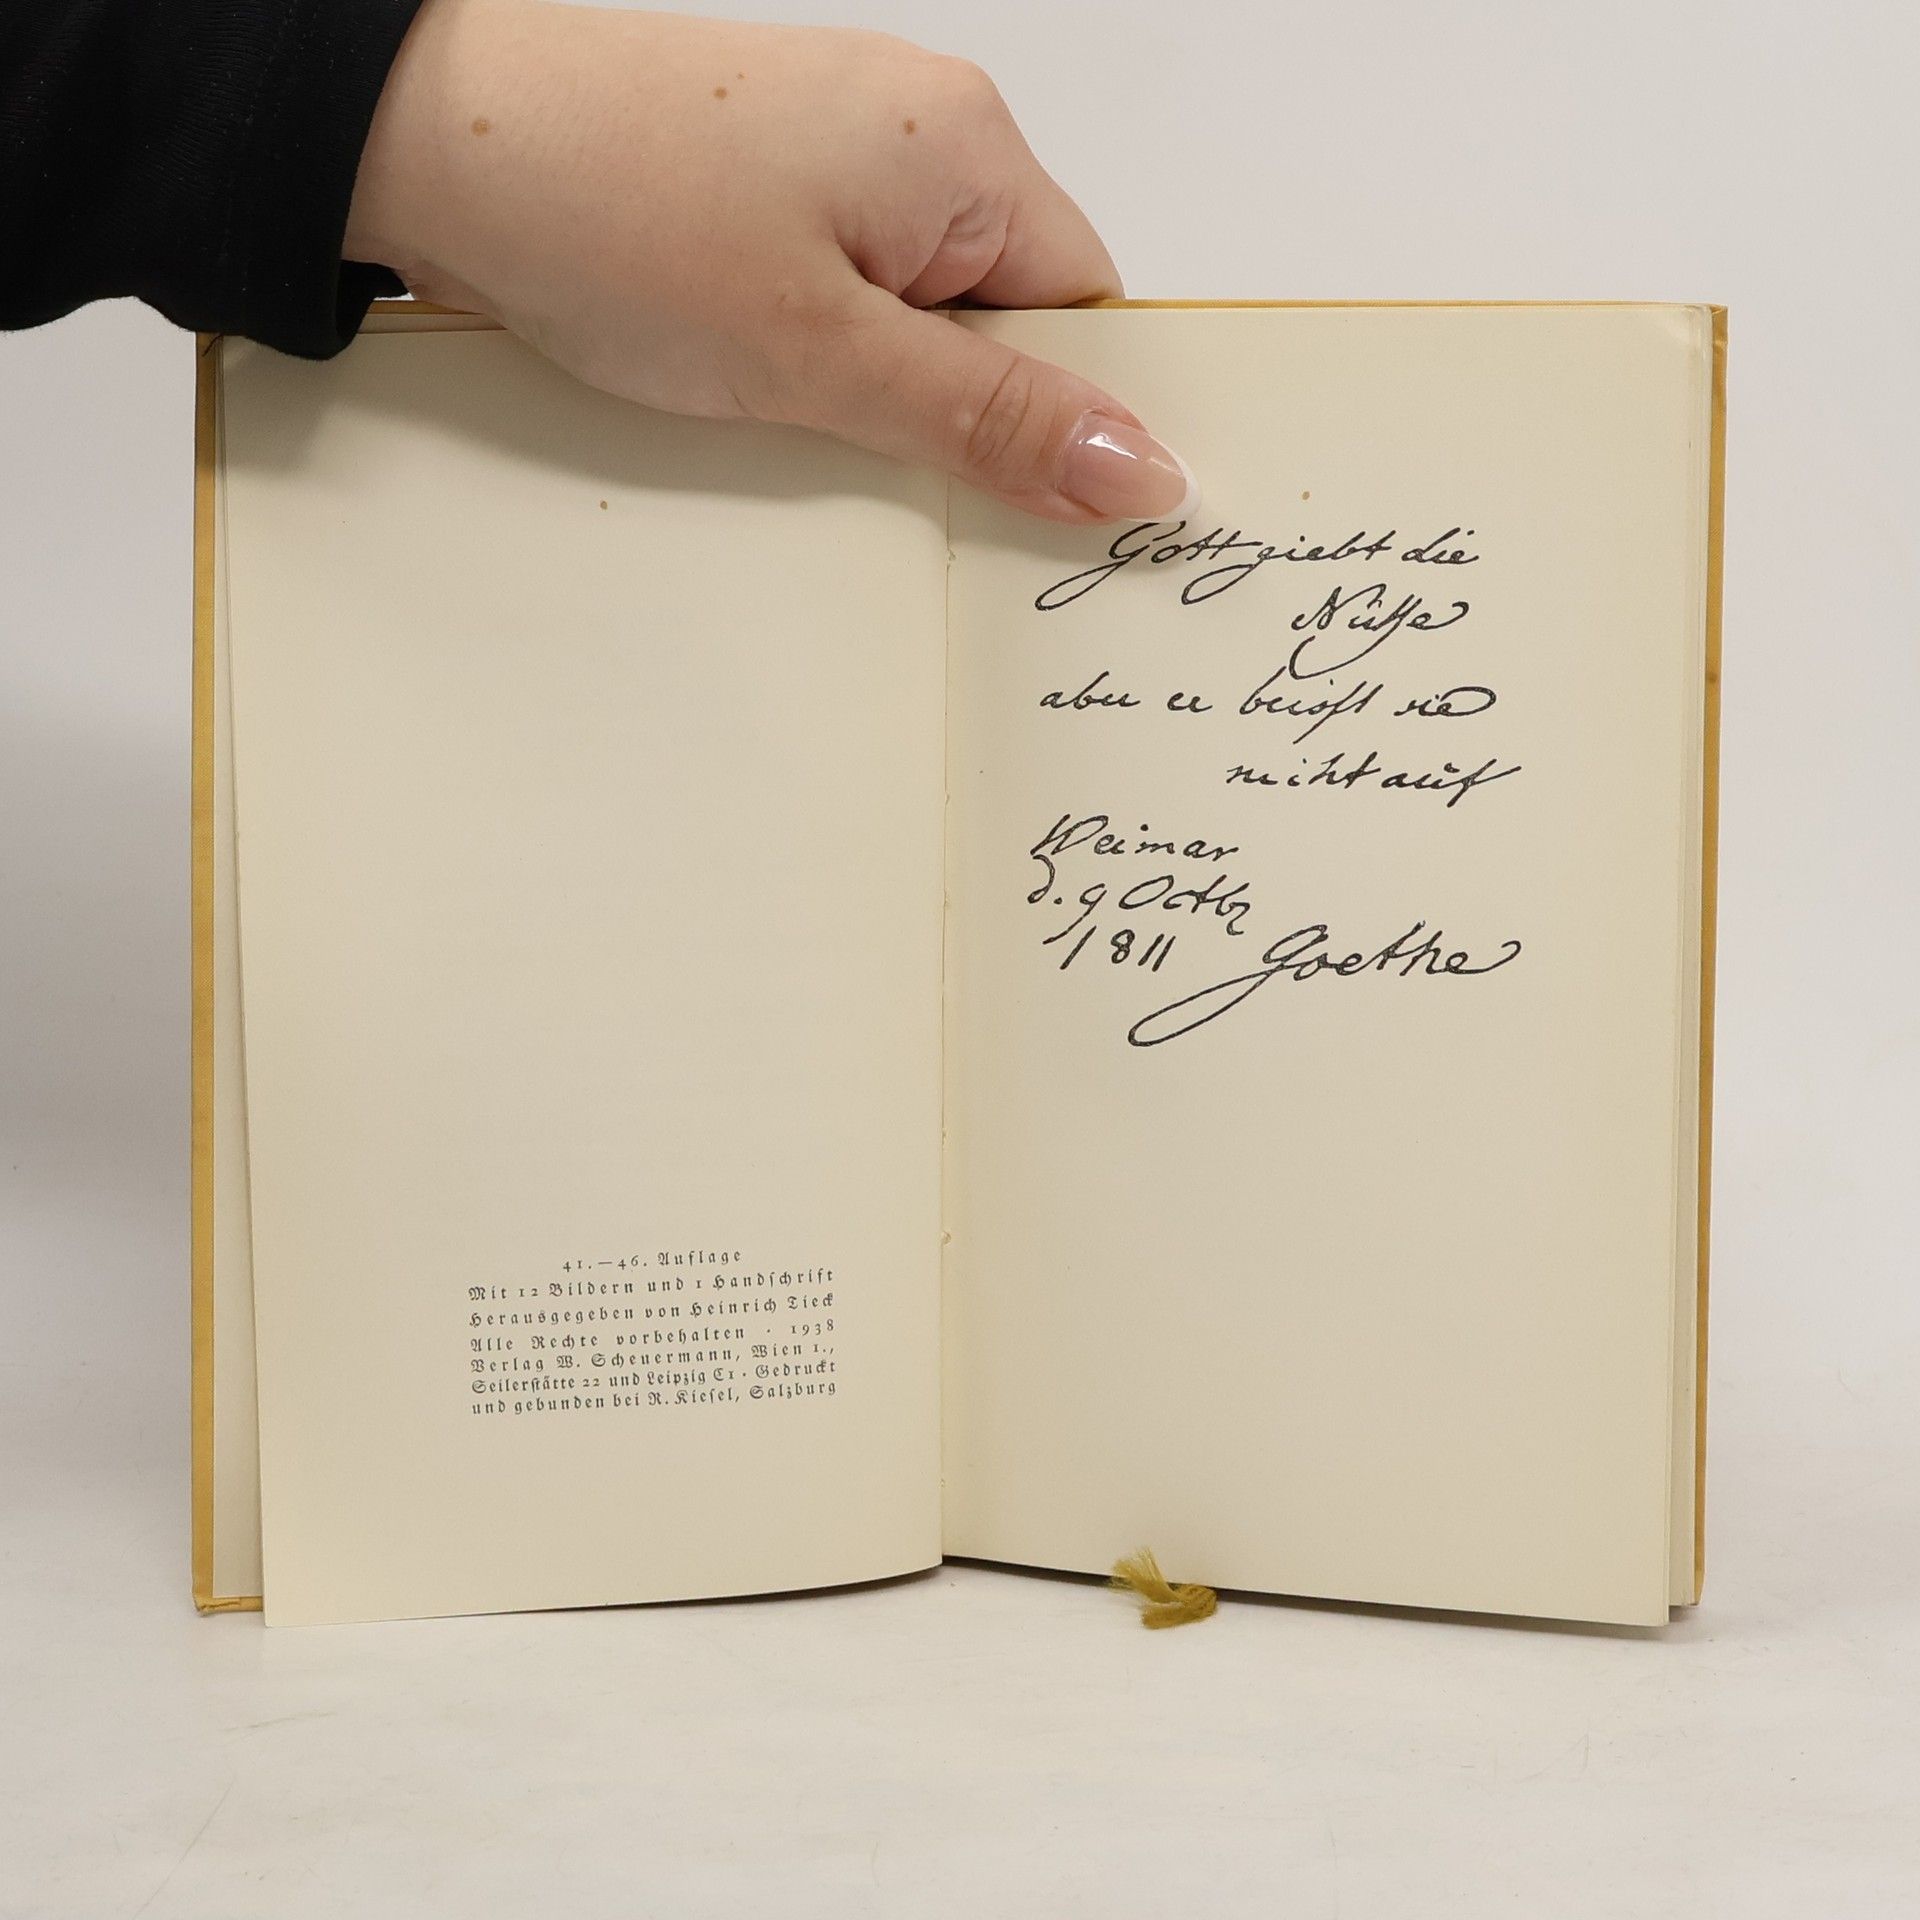 41.—46. Auflage
Mit 12 Bildern und 1 Handschrift
Herausgegeben von Heinrich Tieck
Alle Rechte vorbehalten · 1938
Verlag W. Scheuermann, Wien 1.,
Seilerstätte 22 und Leipzig C1 · Gedruckt
und gebunden bei R. Kiesel, Salzburg
Gott giebt die
Nüsse
aber er beisst sie
nicht auf
Weimar
d. 9 Octbr
1811 Goethe